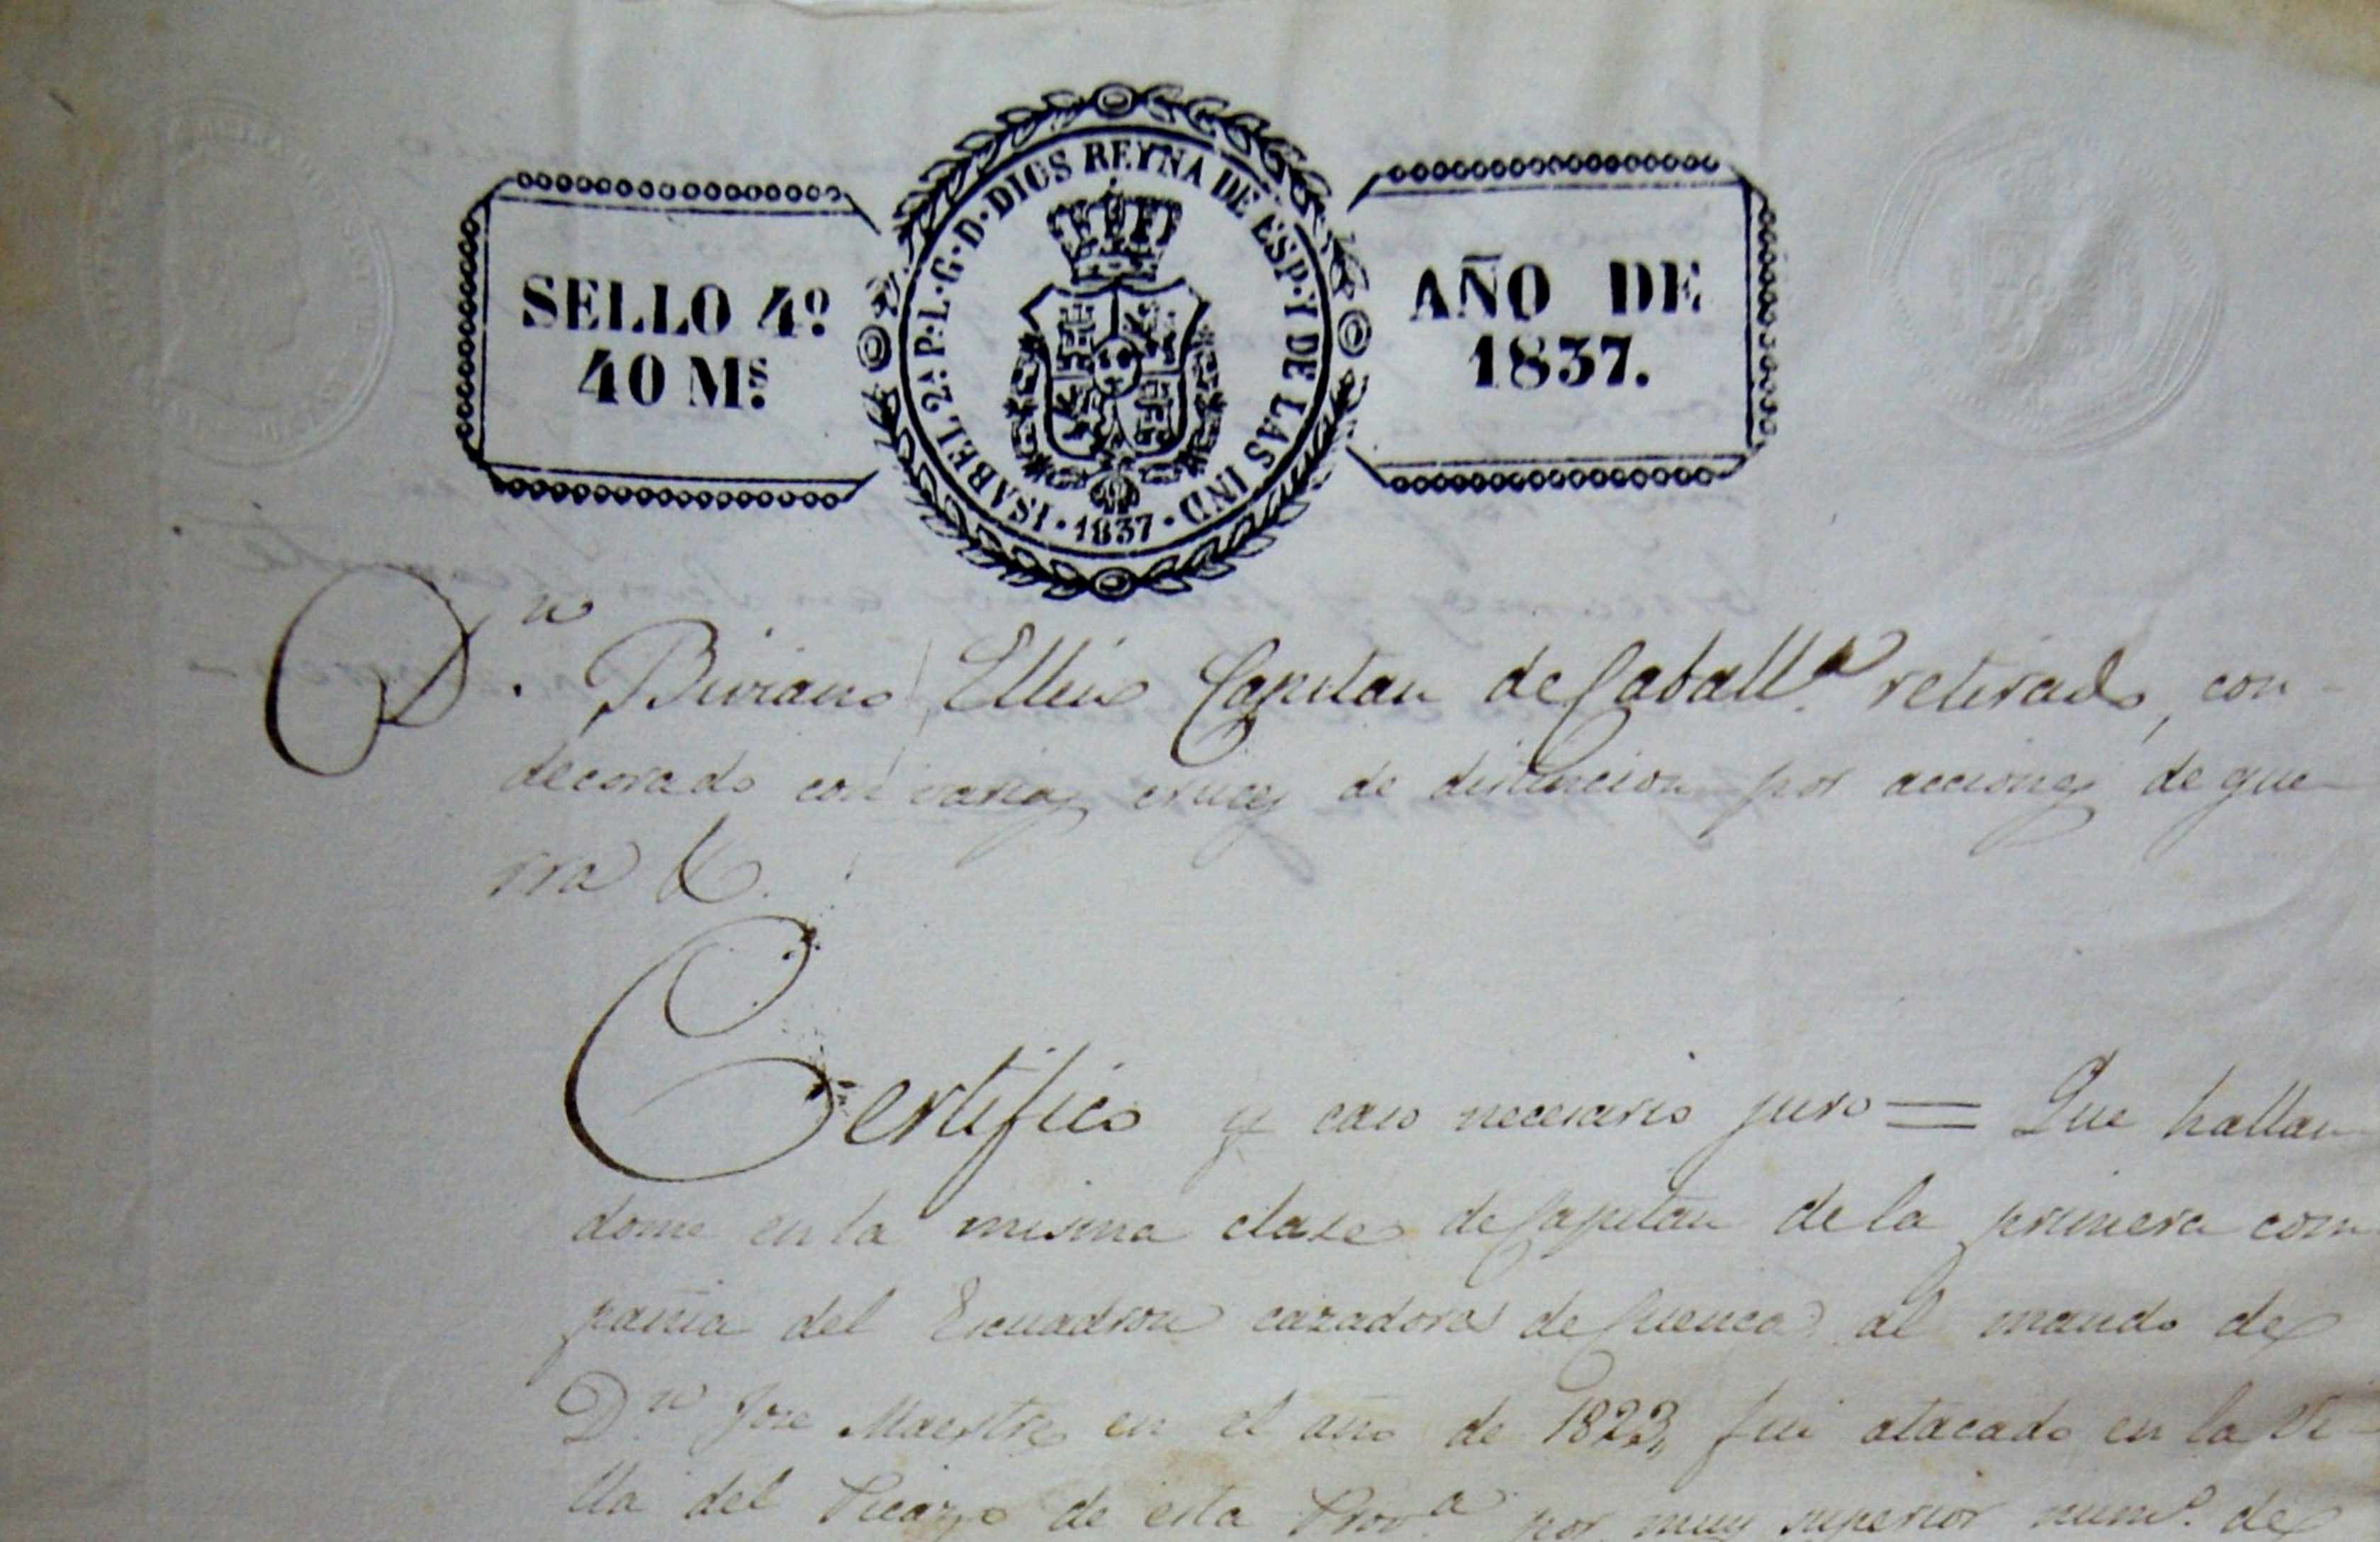 SELLO 4º
40 Mˢ.
ISABEL 2ª P. L. G. D. DIOS REYNA DE ESP. Y DE LAS IND.
1837
AÑO DE
1837.
Dⁿ. Biviano Ellin Capitan de Caballª. retirado, con-
decorado con varias cruces de distincion por acciones de gue-
rra &.
Certifico y caso necesario juro = Que hallan
dome en la misma clase de Capitan de la primera com
pañia del Escuadron cazadores de Cuenca al mando de
Dⁿ. Jose Maestre en el año de 1823, fui atacado en la Vi-
lla del Picazo de esta Provª. por muy superior numº. de